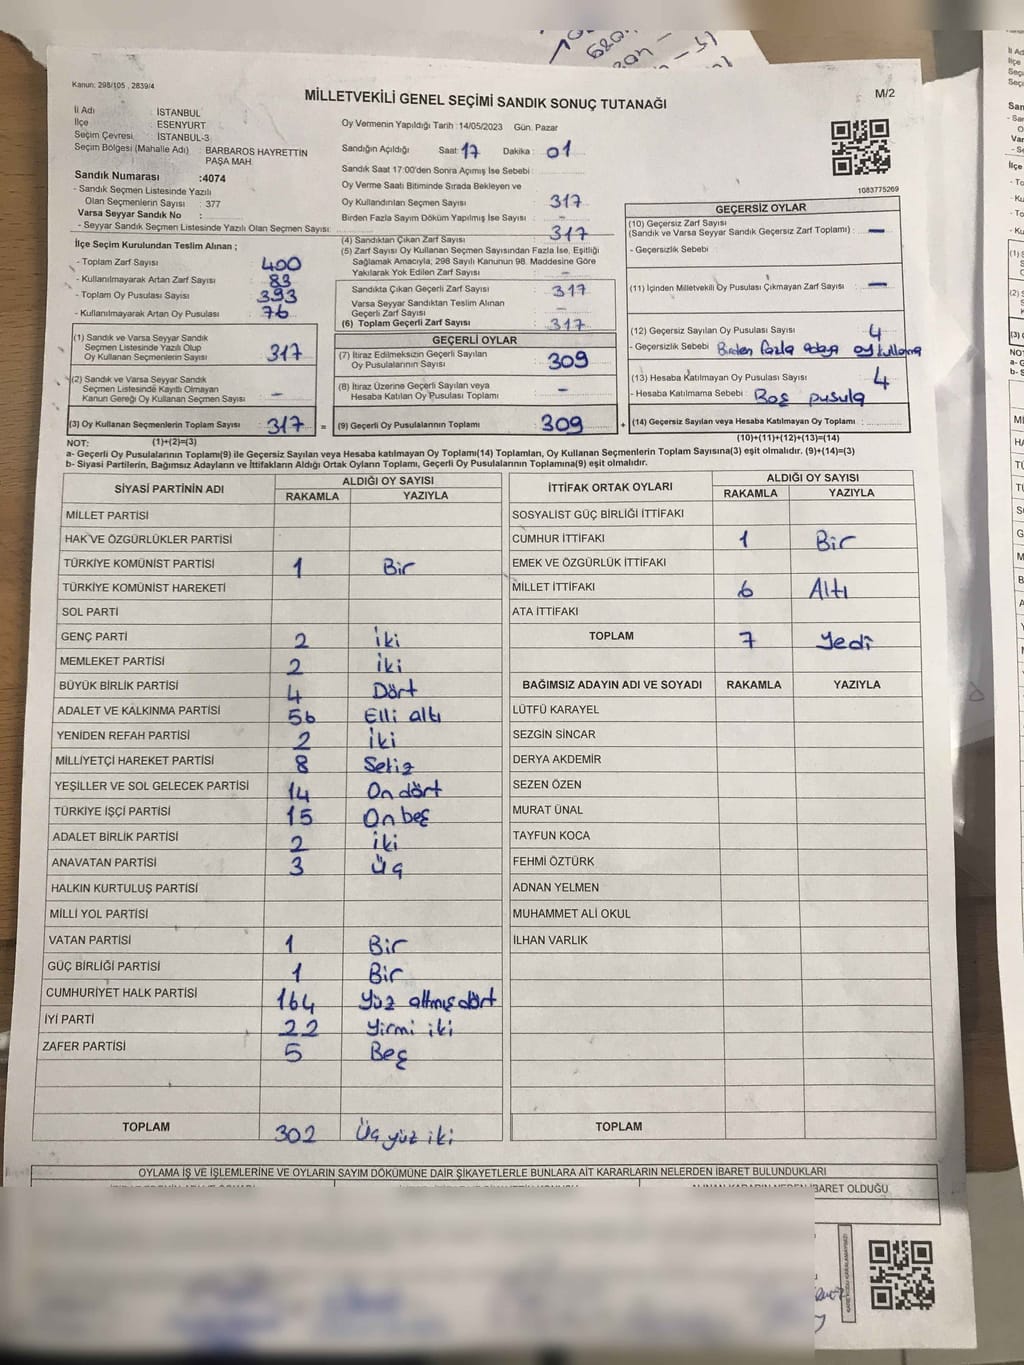 Kanun: 298/105 , 2839/4
MİLLETVEKİLİ GENEL SEÇİMİ SANDIK SONUÇ TUTANAĞI
M/2
İl Adı : İSTANBUL
İlçe : ESENYURT
Seçim Çevresi : İSTANBUL-3
Seçim Bölgesi (Mahalle Adı) : BARBAROS HAYRETTİN
PAŞA MAH.
Sandık Numarası :4074
- Sandık Seçmen Listesinde Yazılı
Olan Seçmenlerin Sayısı : 377
Varsa Seyyar Sandık No :
- Seyyar Sandık Seçmen Listesinde Yazılı Olan Seçmen Sayısı:
İlçe Seçim Kurulundan Teslim Alınan ;
- Toplam Zarf Sayısı : 400
- Kullanılmayarak Artan Zarf Sayısı : 83
- Toplam Oy Pusulası Sayısı : 393
- Kullanılmayarak Artan Oy Pusulası : 76
(1) Sandık ve Varsa Seyyar Sandık
Seçmen Listesinde Yazılı Olup
Oy Kullanan Seçmenlerin Sayısı : 317
(2) Sandık ve Varsa Seyyar Sandık
Seçmen Listesinde Kayıtlı Olmayan
Kanun Gereği Oy Kullanan Seçmen Sayısı : -
(3) Oy Kullanan Seçmenlerin Toplam Sayısı : 317 =
Oy Vermenin Yapıldığı Tarih :14/05/2023 Gün: Pazar
Sandığın Açıldığı Saat: 17 Dakika : 01
Sandık Saat 17:00'den Sonra Açımış İse Sebebi :
Oy Verme Saati Bitiminde Sırada Bekleyen ve
Oy Kullandırılan Seçmen Sayısı : 317
Birden Fazla Sayım Döküm Yapılmış İse Sayısı : -
(4) Sandıktan Çıkan Zarf Sayısı : 317
(5) Zarf Sayısı Oy Kullanan Seçmen Sayısından Fazla İse, Eşitliği
Sağlamak Amacıyla, 298 Sayılı Kanunun 98. Maddesine Göre
Yakılarak Yok Edilen Zarf Sayısı : -
Sandıkta Çıkan Geçerli Zarf Sayısı : 317
Varsa Seyyar Sandıktan Teslim Alınan
Geçerli Zarf Sayısı : -
(6) Toplam Geçerli Zarf Sayısı : 317
GEÇERLİ OYLAR
(7) İtiraz Edilmeksizin Geçerli Sayılan
Oy Pusulalarının Sayısı : 309
(8) İtiraz Üzerine Geçerli Sayılan veya
Hesaba Katılan Oy Pusulası Toplamı : -
(9) Geçerli Oy Pusulalarının Toplamı : 309 +
1083775269
GEÇERSİZ OYLAR
(10) Geçersiz Zarf Sayısı
(Sandık ve Varsa Seyyar Sandık Geçersiz Zarf Toplamı) : -
- Geçersizlik Sebebi :
(11) İçinden Milletvekili Oy Pusulası Çıkmayan Zarf Sayısı : -
(12) Geçersiz Sayılan Oy Pusulası Sayısı : 4
- Geçersizlik Sebebi : Birden fazla adaya oy kullama
(13) Hesaba Katılmayan Oy Pusulası Sayısı : 4
- Hesaba Katılmama Sebebi : Boş pusula
(14) Geçersiz Sayılan veya Hesaba Katılmayan Oy Toplamı :
NOT: (1)+(2)=(3) (10)+(11)+(12)+(13)=(14)
a- Geçerli Oy Pusulalarının Toplamı(9) ile Geçersiz Sayılan veya Hesaba katılmayan Oy Toplamı(14) Toplamları, Oy Kullanan Seçmenlerin Toplam Sayısına(3) eşit olmalıdır. (9)+(14)=(3)
b- Siyasi Partilerin, Bağımsız Adayların ve İttifakların Aldığı Ortak Oyların Toplamı, Geçerli Oy Pusulalarının Toplamına(9) eşit olmalıdır.
SİYASİ PARTİNİN ADI
ALDIĞI OY SAYISI
RAKAMLA YAZIYLA
MİLLET PARTİSİ
HAK VE ÖZGÜRLÜKLER PARTİSİ
TÜRKİYE KOMÜNİST PARTİSİ 1 Bir
TÜRKİYE KOMÜNİST HAREKETİ
SOL PARTİ
GENÇ PARTİ 2 iki
MEMLEKET PARTİSİ 2 iki
BÜYÜK BİRLİK PARTİSİ 4 Dört
ADALET VE KALKINMA PARTİSİ 56 Elli altı
YENİDEN REFAH PARTİSİ 2 iki
MİLLİYETÇİ HAREKET PARTİSİ 8 Sekiz
YEŞİLLER VE SOL GELECEK PARTİSİ 14 On dört
TÜRKİYE İŞÇİ PARTİSİ 15 On beş
ADALET BİRLİK PARTİSİ 2 iki
ANAVATAN PARTİSİ 3 Üç
HALKIN KURTULUŞ PARTİSİ
MİLLİ YOL PARTİSİ
VATAN PARTİSİ 1 Bir
GÜÇ BİRLİĞİ PARTİSİ 1 Bir
CUMHURİYET HALK PARTİSİ 164 Yüz altmış dört
İYİ PARTİ 22 Yirmi iki
ZAFER PARTİSİ 5 Beş
TOPLAM 302 Üç yüz iki
İTTİFAK ORTAK OYLARI
ALDIĞI OY SAYISI
RAKAMLA YAZIYLA
SOSYALİST GÜÇ BİRLİĞİ İTTİFAKI
CUMHUR İTTİFAKI 1 Bir
EMEK VE ÖZGÜRLÜK İTTİFAKI
MİLLET İTTİFAKI 6 Altı
ATA İTTİFAKI
TOPLAM 7 Yedi
BAĞIMSIZ ADAYIN ADI VE SOYADI RAKAMLA YAZIYLA
LÜTFÜ KARAYEL
SEZGİN SİNCAR
DERYA AKDEMİR
SEZEN ÖZEN
MURAT ÜNAL
TAYFUN KOCA
FEHMİ ÖZTÜRK
ADNAN YELMEN
MUHAMMET ALİ OKUL
İLHAN VARLIK
TOPLAM
OYLAMA İŞ VE İŞLEMLERİNE VE OYLARIN SAYIM DÖKÜMÜNE DAİR ŞİKAYETLERLE BUNLARA AİT KARARLARIN NELERDEN İBARET BULUNDUKLARI
İBARET OLDUĞU